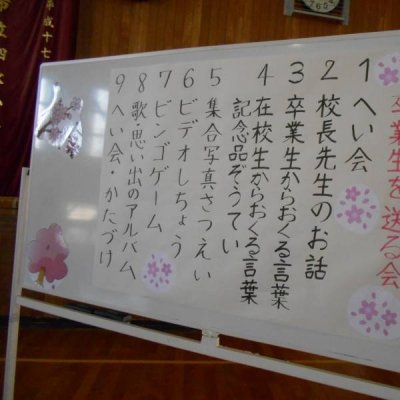 卒業生を送る会
1 へい会
2 校長先生のお話
3 卒業生からおくる言葉
4 在校生からおくる言葉
記念品ぞうてい
5 集合写真さつえい
6 ビデオしちょう
7 ビンゴゲーム
8 歌・思い出のアルバム
9 へい会・かたづけ
平成十七